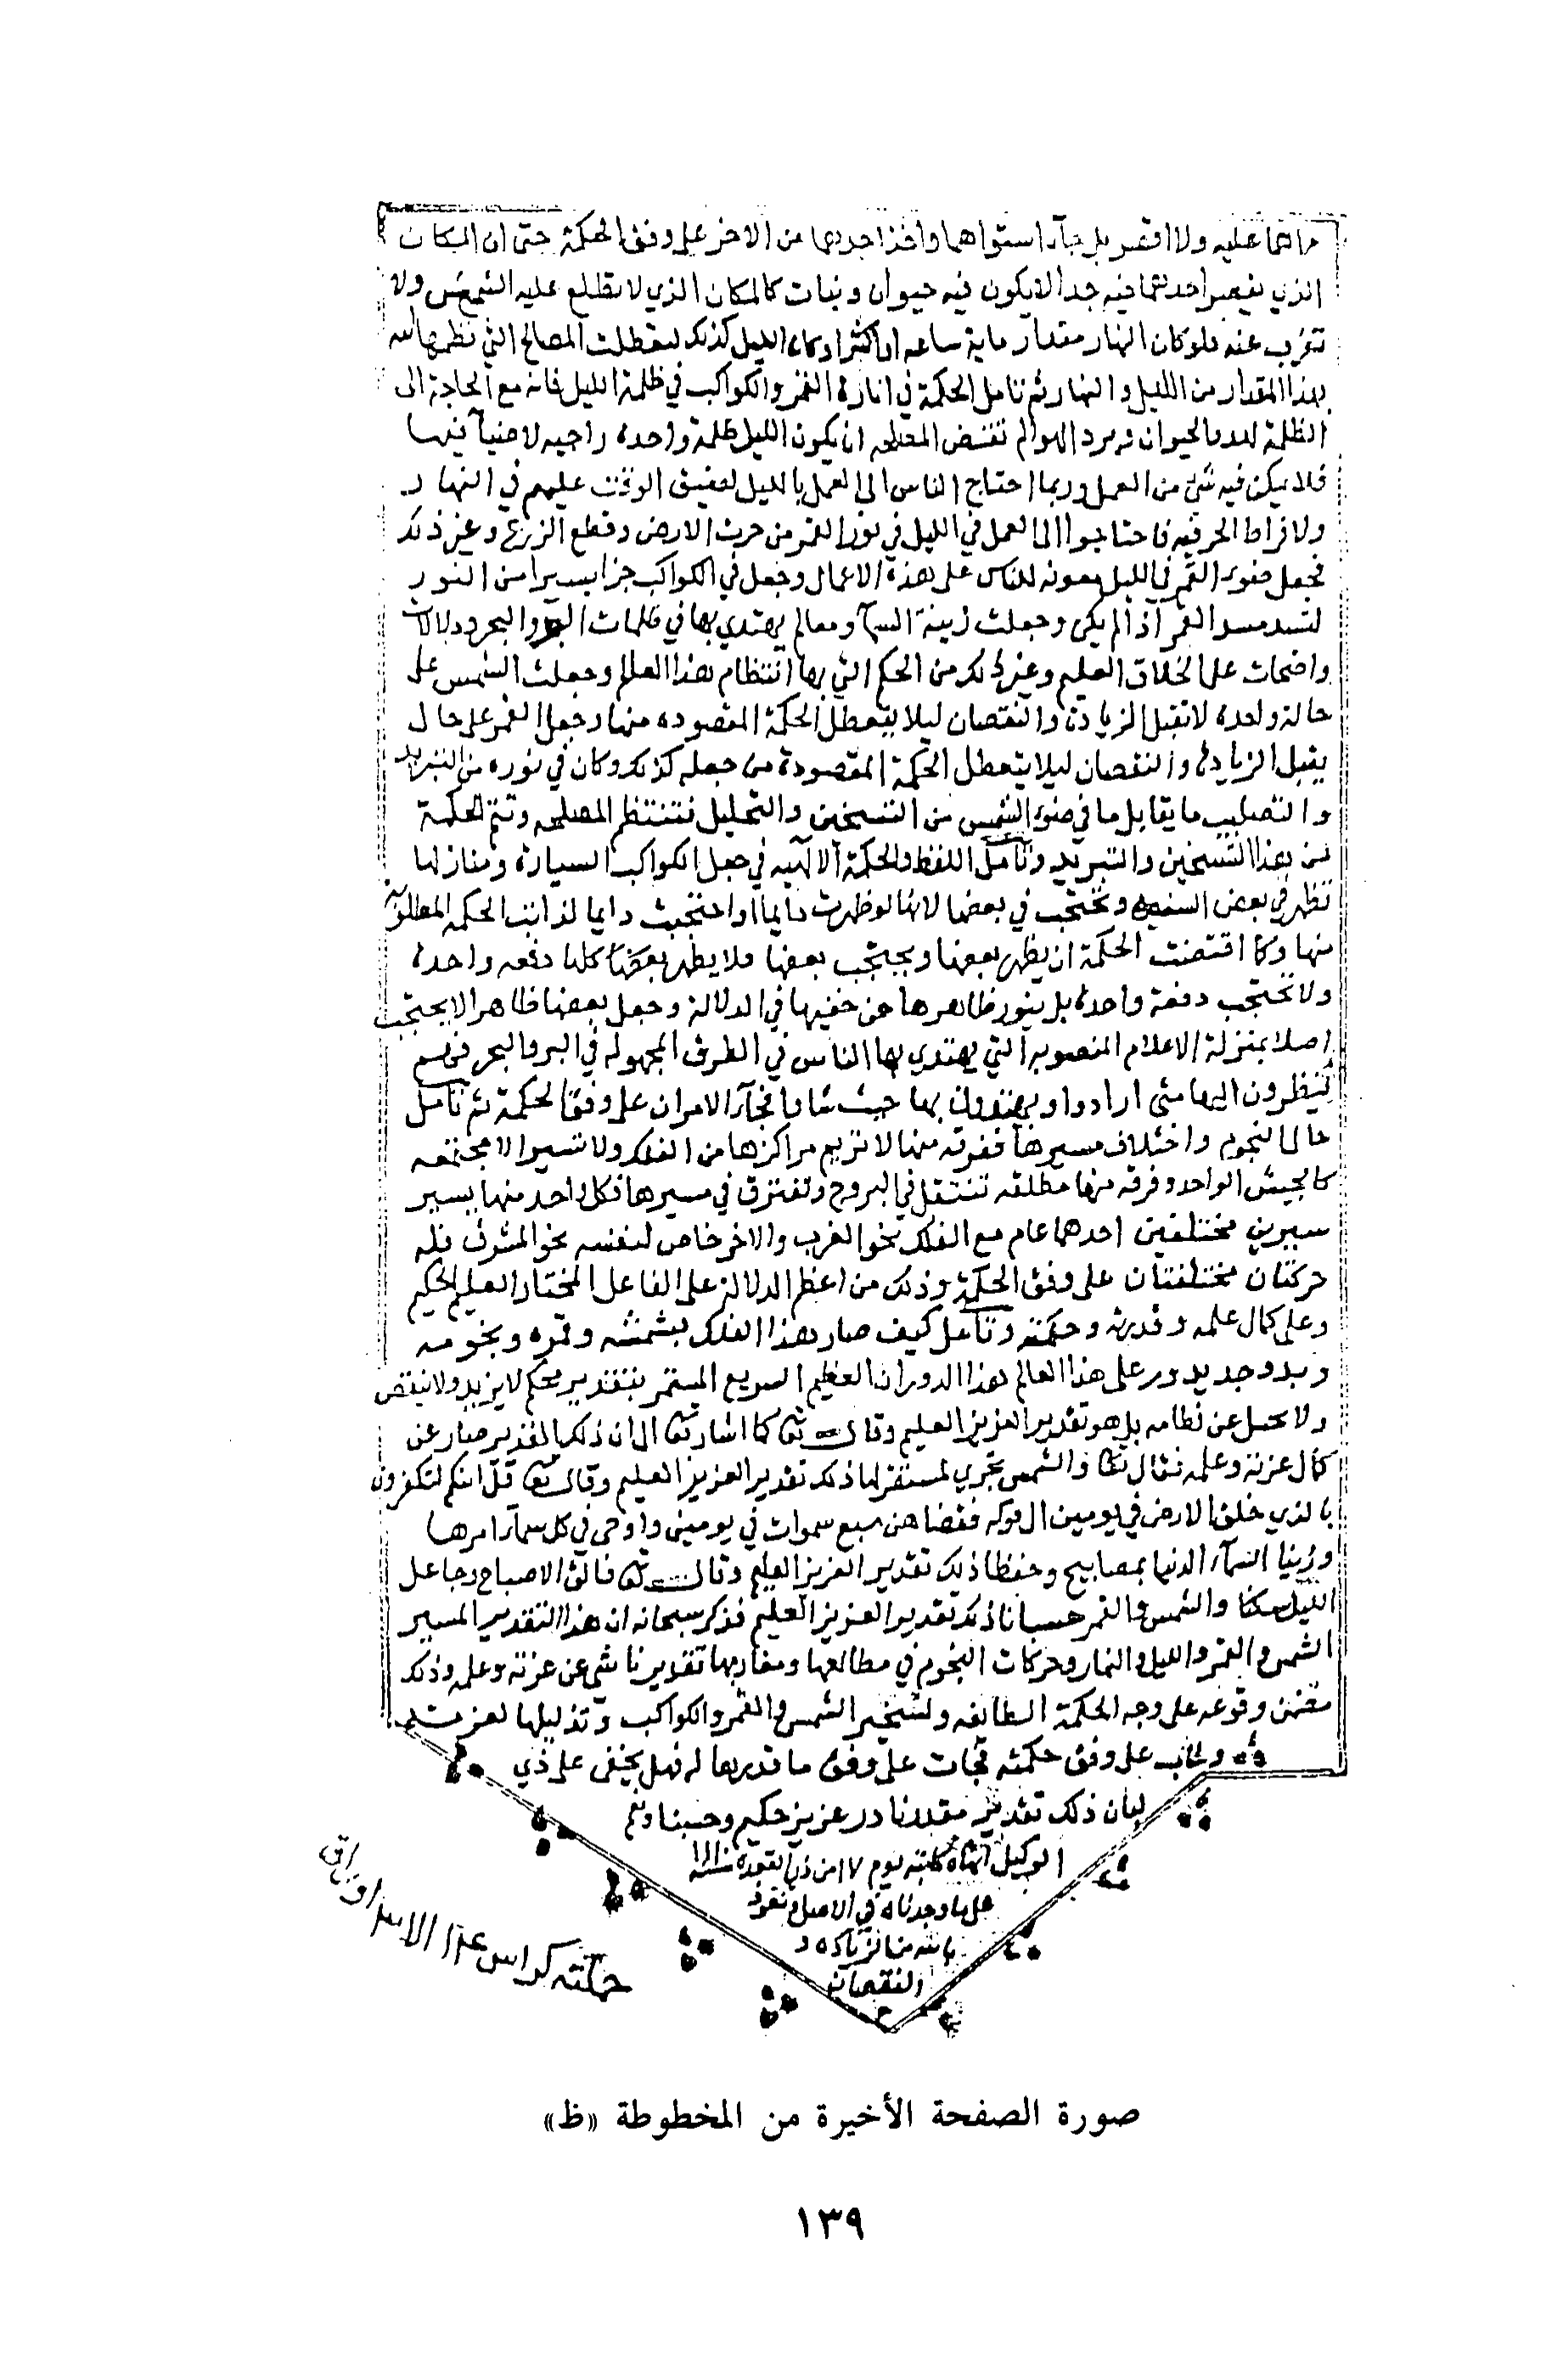 ما هما عليه ولا اقصر بل جآء استواهما واخذ احدهما من الاخر على وفق الحكمة حتى ان المكان
الذي يقصر احدهما فيه جدا لا يكون فيه حيوان ونبات كالمكان الذي لا تطلع عليه الشمس ولا
تغرب عنه فلو كان النهار مقدار ماية ساعه او اكثر او كان الليل كذلك لتعطلت المصالح التي نظمها الله
بهذا المقدار من الليل والنهار ثم تامل الحكمة في انارة القمر والكواكب في ظلمة الليل فانه مع الحاجة الى
الظلمة الحيوان وبرد الهوا لم تقتض المصلحه ان يكون الليل ظلمة واحدة داجيه لا ضيآ فيها
فلا يمكن فيه شئ من العمل وربما احتاج الناس الى العمل بالليل لضيق الوقت عليهم في النهار
ولافراط الحر فيه فاحتاجوا الى العمل في الليل في نور القمر من حرث الارض وقطع الزرع وغير ذلك
فجعل ضوء القمر في الليل معونه للناس على هذه الاعمال وجعل في الكواكب جزا يسيرا من النور
لتسد مسد القمر اذا لم يكن وجعلت زينة السمآ ومعالم يهتدي بها في ظلمات البر والبحر ودلالات
واضحات على الخلاق العليم وغير ذلك من الحكم التي بها انتظام هذا العالم وجعلت الشمس على
حالة واحدة لا تقبل الزيادة والنقصان ليلا يتعطل الحكمة المقصوده منها وجعل القمر على حال
يقبل الزيادة والنقصان ليلا يتعطل الحكمة المقصودة من جعله كذلك وكان في نوره من التبريد
والتصليب ما يقابل ما في ضوء الشمس من التسخين والتحليل فتنتظم المصلحه وتتم الحكمة
من هذا التسخين والتبريد وتآمل اللطف والحكمة الآلهيه في جعل الكواكب السيارة ومنازلها
تظهر في بعض السنه وتحتجب في بعضها لانها لو ظهرت دايما او احتجبت دايما لذابت الحكمه المطلوبه
منها وكما اقتضت الحكمة ان يظهر بعضها ويحتجب بعضها فلا يظهر بعضها كلها دفعه واحدة
ولا تحتجب دفعة واحدة بل ينوب ظاهرها عن خفيها في الدلالة وجعل بعضها ظاهرا لا يحتجب
اصلا بمنزلة الاعلام المنصوبه التي يهتدي بها الناس في الطرق المجهوله في البر والبحر فهم
ينظرون اليها متى ارادوا ويهتدون بها حيث شاوا فجآء الامران على وفق الحكمة ثم تآمل
حال النجوم واختلاف مسيرها ففرقه منها لا تريم مراكزها من الفلك ولا تسير الا مجتمعه
كالجيش الواحد وفرقه منها مطلقه تنتقل في البروج وتفترق في مسيرها فكل واحد منها يسير
سيرين مختلفين احدهما عام مع الفلك نحو الغرب والاخر خاص لنفسه نحو المشرق فله
حركتان مختلفتان على وفق الحكمة وذلك من اعظم الدلالة على الفاعل المختار العليم الحكيم
وعلى كمال علمه وقدرته وحكمته وتآمل كيف صار هذا الفلك بشمسه وقمره ونجومه
وبروجه يدور على هذا العالم هذا الدوران العظيم السريع المستمر بتقدير محكم لا يزيد ولا ينقص
ولا يختل عن نظامه بل هو تقدير العزيز العليم وقال تعالى كما اشار تعالى الى ان ذلك التقدير صار عن
كمال عزته وعلمه فقال تعالى والشمس تجري لمستقر لها ذلك تقدير العزيز العليم وقال تعالى قل ائنكم لتكفرون
بالذي خلق الارض في يومين الى قوله فقضاهن سبع سموات في يومين واوحى في كل سمآء امرها
وزينا السمآء الدنيا بمصابيح وحفظا ذلك تقدير العزيز العليم وقال تعالى فالق الاصباح وجاعل
الليل سكنا والشمس والقمر حسبانا ذلك تقدير العزيز العليم فذكر سبحانه ان هذا التقدير المسير
الشمس والقمر والليل والنهار وحركات النجوم في مطالعها ومغاربها تقدير ناشي عن عزته وعلمه وذلك
متضمن وقوعه على وجه الحكمة البالغه وتسخير الشمس والقمر والكواكب وتذليلها لعزته
على وفق حكمته فجات على وفق ما قدرها له فهل يخفى على ذي
لب ان ذلك تقدير مقدر قادر عزيز حكيم وحسبنا ونعم
الوكيل كتبته يوم ١٧ من ذي القعده
على ما وجدناه في الاصل ونعوذ
بالله من الزيادة و
النقصان
جملته كراس
صورة الصفحة الأخيرة من المخطوطة «ظ»
١٣٩